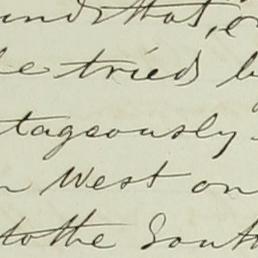 and that, o
he tried b
tageously
n West on
to the South